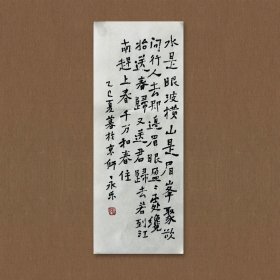 水是眼波横山是眉峯聚欲
问行人去那邊眉眼盈〻處纔
始送春歸又送君歸去若到江
南趕上春千万和春住
乙巳夏暮於京師永乐